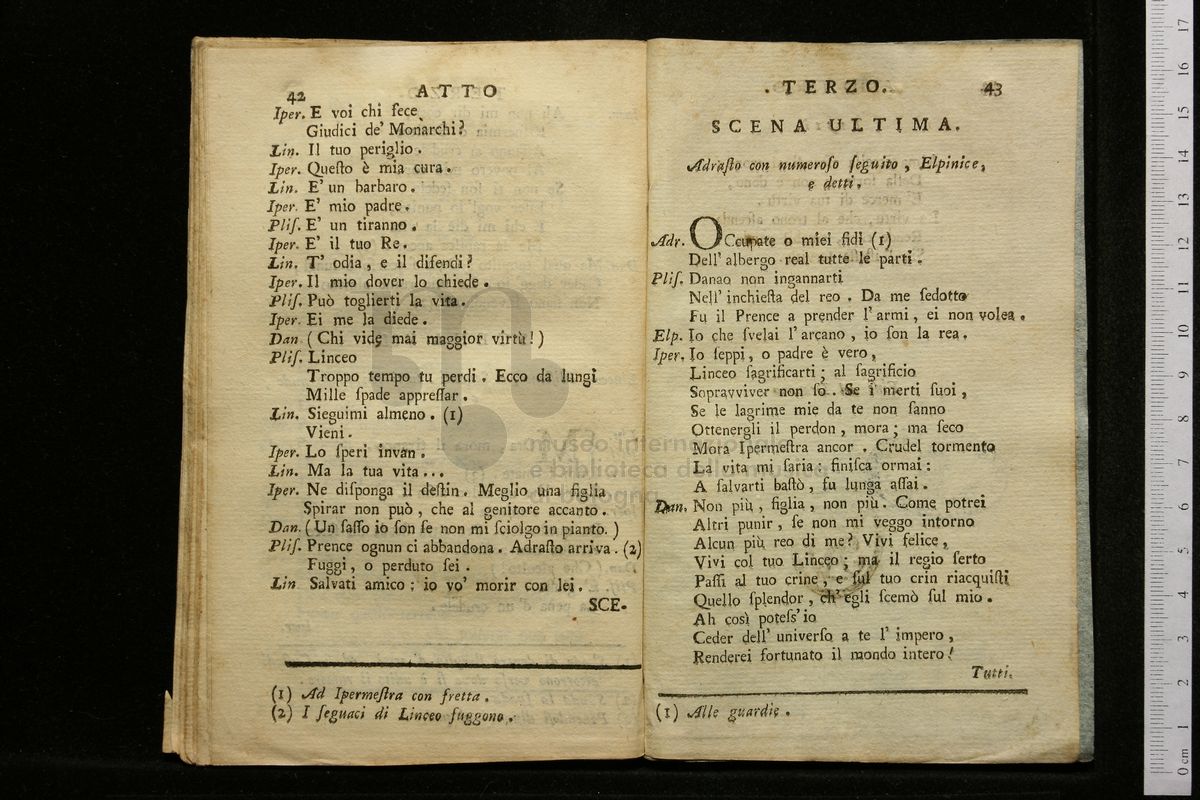 42 ATTO
Iper. E voi chi fece
Giudici de' Monarchi?
Lin. Il tuo periglio.
Iper. Queſto è mia cura.
Lin. E' un barbaro.
Iper. E' mio padre.
Pliſ. E' un tiranno.
Iper. E' il tuo Re.
Lin. T' odia, e il difendi?
Iper. Il mio dover lo chiede.
Pliſ. Può toglierti la vita.
Iper. Ei me la diede.
Dan (Chi vide mai maggior virtù!)
Pliſ. Linceo
Troppo tempo tu perdi. Ecco da lungi
Mille ſpade appreſſar.
Lin. Sieguimi almeno. (1)
Vieni.
Iper. Lo ſperi invan.
Lin. Ma la tua vita...
Iper. Ne diſponga il deſtin. Meglio una figlia
Spirar non può, che al genitore accanto.
Dan. (Un ſaſſo io ſon ſe non mi ſciolgo in pianto.)
Pliſ. Prence ognun ci abbandona. Adraſto arriva. (2)
Fuggi, o perduto ſei.
Lin Salvati amico; io vo' morir con lei.
SCE-
(1) Ad Ipermeſtra con fretta.
(2) I ſeguaci di Linceo fuggono.
. TERZO. 43
SCENA ULTIMA.
Adraſto con numeroſo ſeguito, Elpinice,
e detti.
Adr. OCcupate o miei fidi (1)
Dell' albergo real tutte le parti.
Pliſ. Danao non ingannarti
Nell' inchieſta del reo. Da me ſedotto
Fu il Prence a prender l' armi, ei non volea.
Elp. Io che ſvelai l' arcano, io ſon la rea.
Iper. Io ſeppi, o padre è vero,
Linceo ſagrificarti; al ſagrificio
Sopravviver non ſo. Se i merti ſuoi,
Se le lagrime mie da te non ſanno
Ottenergli il perdon, mora; ma ſeco
Mora Ipermeſtra ancor. Crudel tormento
La vita mi ſaria: finiſca ormai:
A ſalvarti baſtò, fu lunga aſſai.
Dan. Non più, figlia, non più. Come potrei
Altri punir, ſe non mi veggo intorno
Alcun più reo di me? Vivi felice,
Vivi col tuo Linceo; ma il regio ſerto
Paſſi al tuo crine, e ſul tuo crin riacquiſti
Quello ſplendor, ch' egli ſcemò ſul mio.
Ah così poteſs' io
Ceder dell' univerſo a te l' impero,
Renderei fortunato il mondo intero!
Tutti.
(1) Alle guardie.
museo internazionale
e biblioteca della musica
di bologna
0 cm 1 2 3 4 5 6 7 8 9 10 11 12 13 14 15 16 17